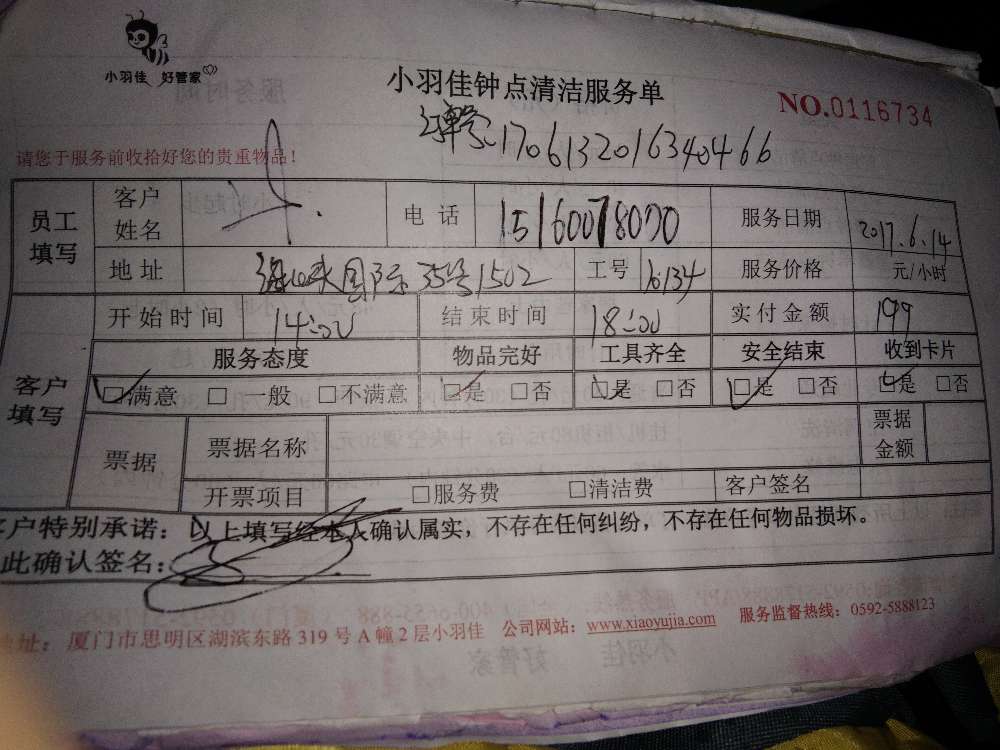 小羽佳 好管家
小羽佳钟点清洁服务单
NO.0116734
1706132016340466
请您于服务前收拾好您的贵重物品！
员工填写 客户姓名 电话 15160078000 服务日期 2017.6.14
地址 国际35号1502 工号 16134 服务价格 元/小时
客户填写 开始时间 14:00 结束时间 18:00 实付金额 199
服务态度 物品完好 工具齐全 安全结束 收到卡片
□满意 □一般 □不满意 □是 □否 □是 □否 □是 □否 □是 □否
票据 票据名称 票据金额
开票项目 □服务费 □清洁费 客户签名
客户特别承诺：以上填写经本人确认属实，不存在任何纠纷，不存在任何物品损坏。
此确认签名：
地址：厦门市思明区湖滨东路319号A幢2层小羽佳 公司网站：www.xiaoyujia.com 服务监督热线：0592-5888123